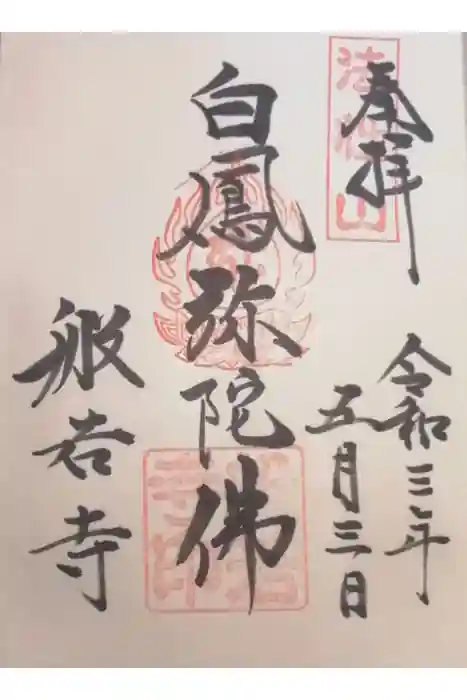 奉拝
令和三年
五月三日
白鳳弥陀佛
般若寺